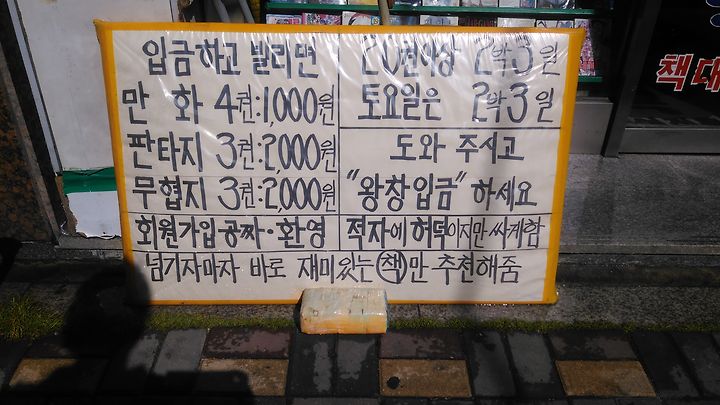 입금하고 빌리면
만화 4권:1,000원
판타지 3권:2,000원
무협지 3권:2,000원
회원가입 공짜·환영
20권이상 2박3일
토요일은 2박3일
도와 주시고
"왕창입금"하세요
적자에 허덕이지만 싸게함
넘기자마자 바로 재미있는 책만 추천해줌
책대